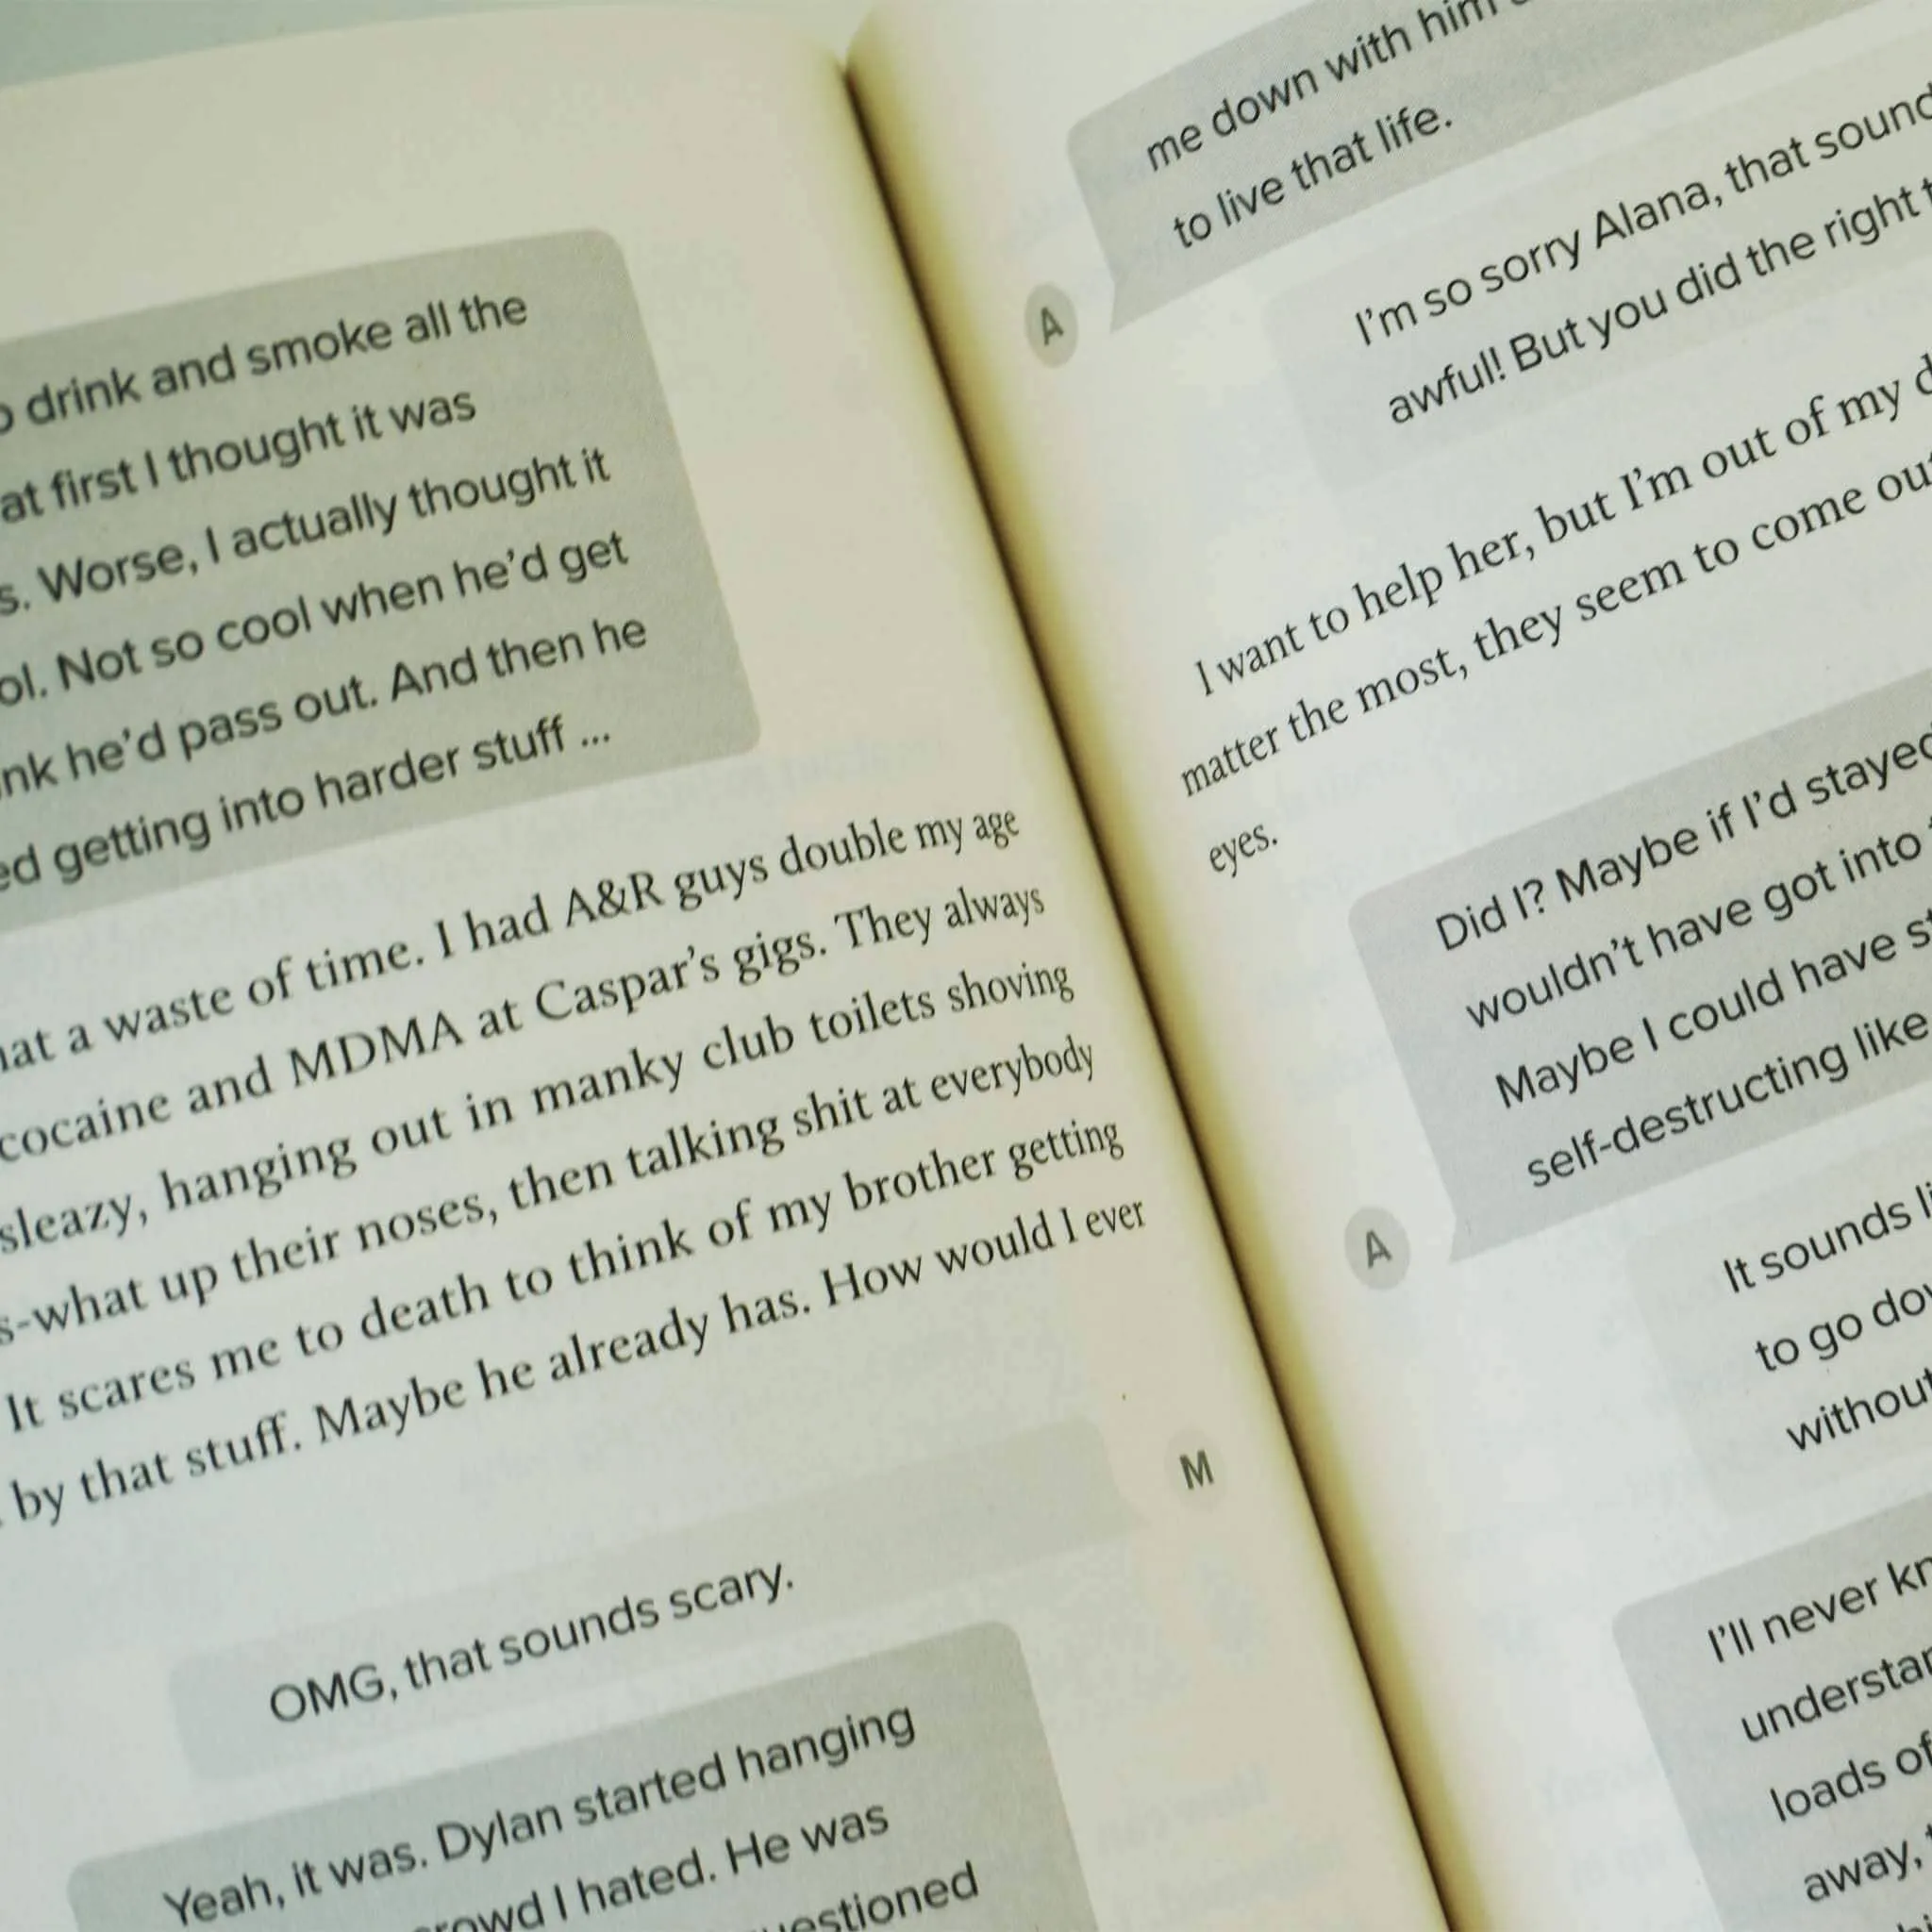 drink and smoke all the
at first I thought it was
s. Worse, I actually thought it
ol. Not so cool when he'd get
nk he'd pass out. And then he
ed getting into harder stuff ...
hat a waste of time. I had A&R guys double my age
cocaine and MDMA at Caspar's gigs. They always
sleazy, hanging out in manky club toilets shoving
s-what up their noses, then talking shit at everybody
It scares me to death to think of my brother getting
by that stuff. Maybe he already has. How would I ever
M
OMG, that sounds scary.
Yeah, it was. Dylan started hanging
crowd I hated. He was
uestioned
me down with him
to live that life.
A
I'm so sorry Alana, that sound
awful! But you did the right t
I want to help her, but I'm out of my d
matter the most, they seem to come out
eyes.
Did I? Maybe if I'd stayed
wouldn't have got into
Maybe I could have st
self-destructing like
A
It sounds li
to go dow
without
I'll never kn
understan
loads of
away,